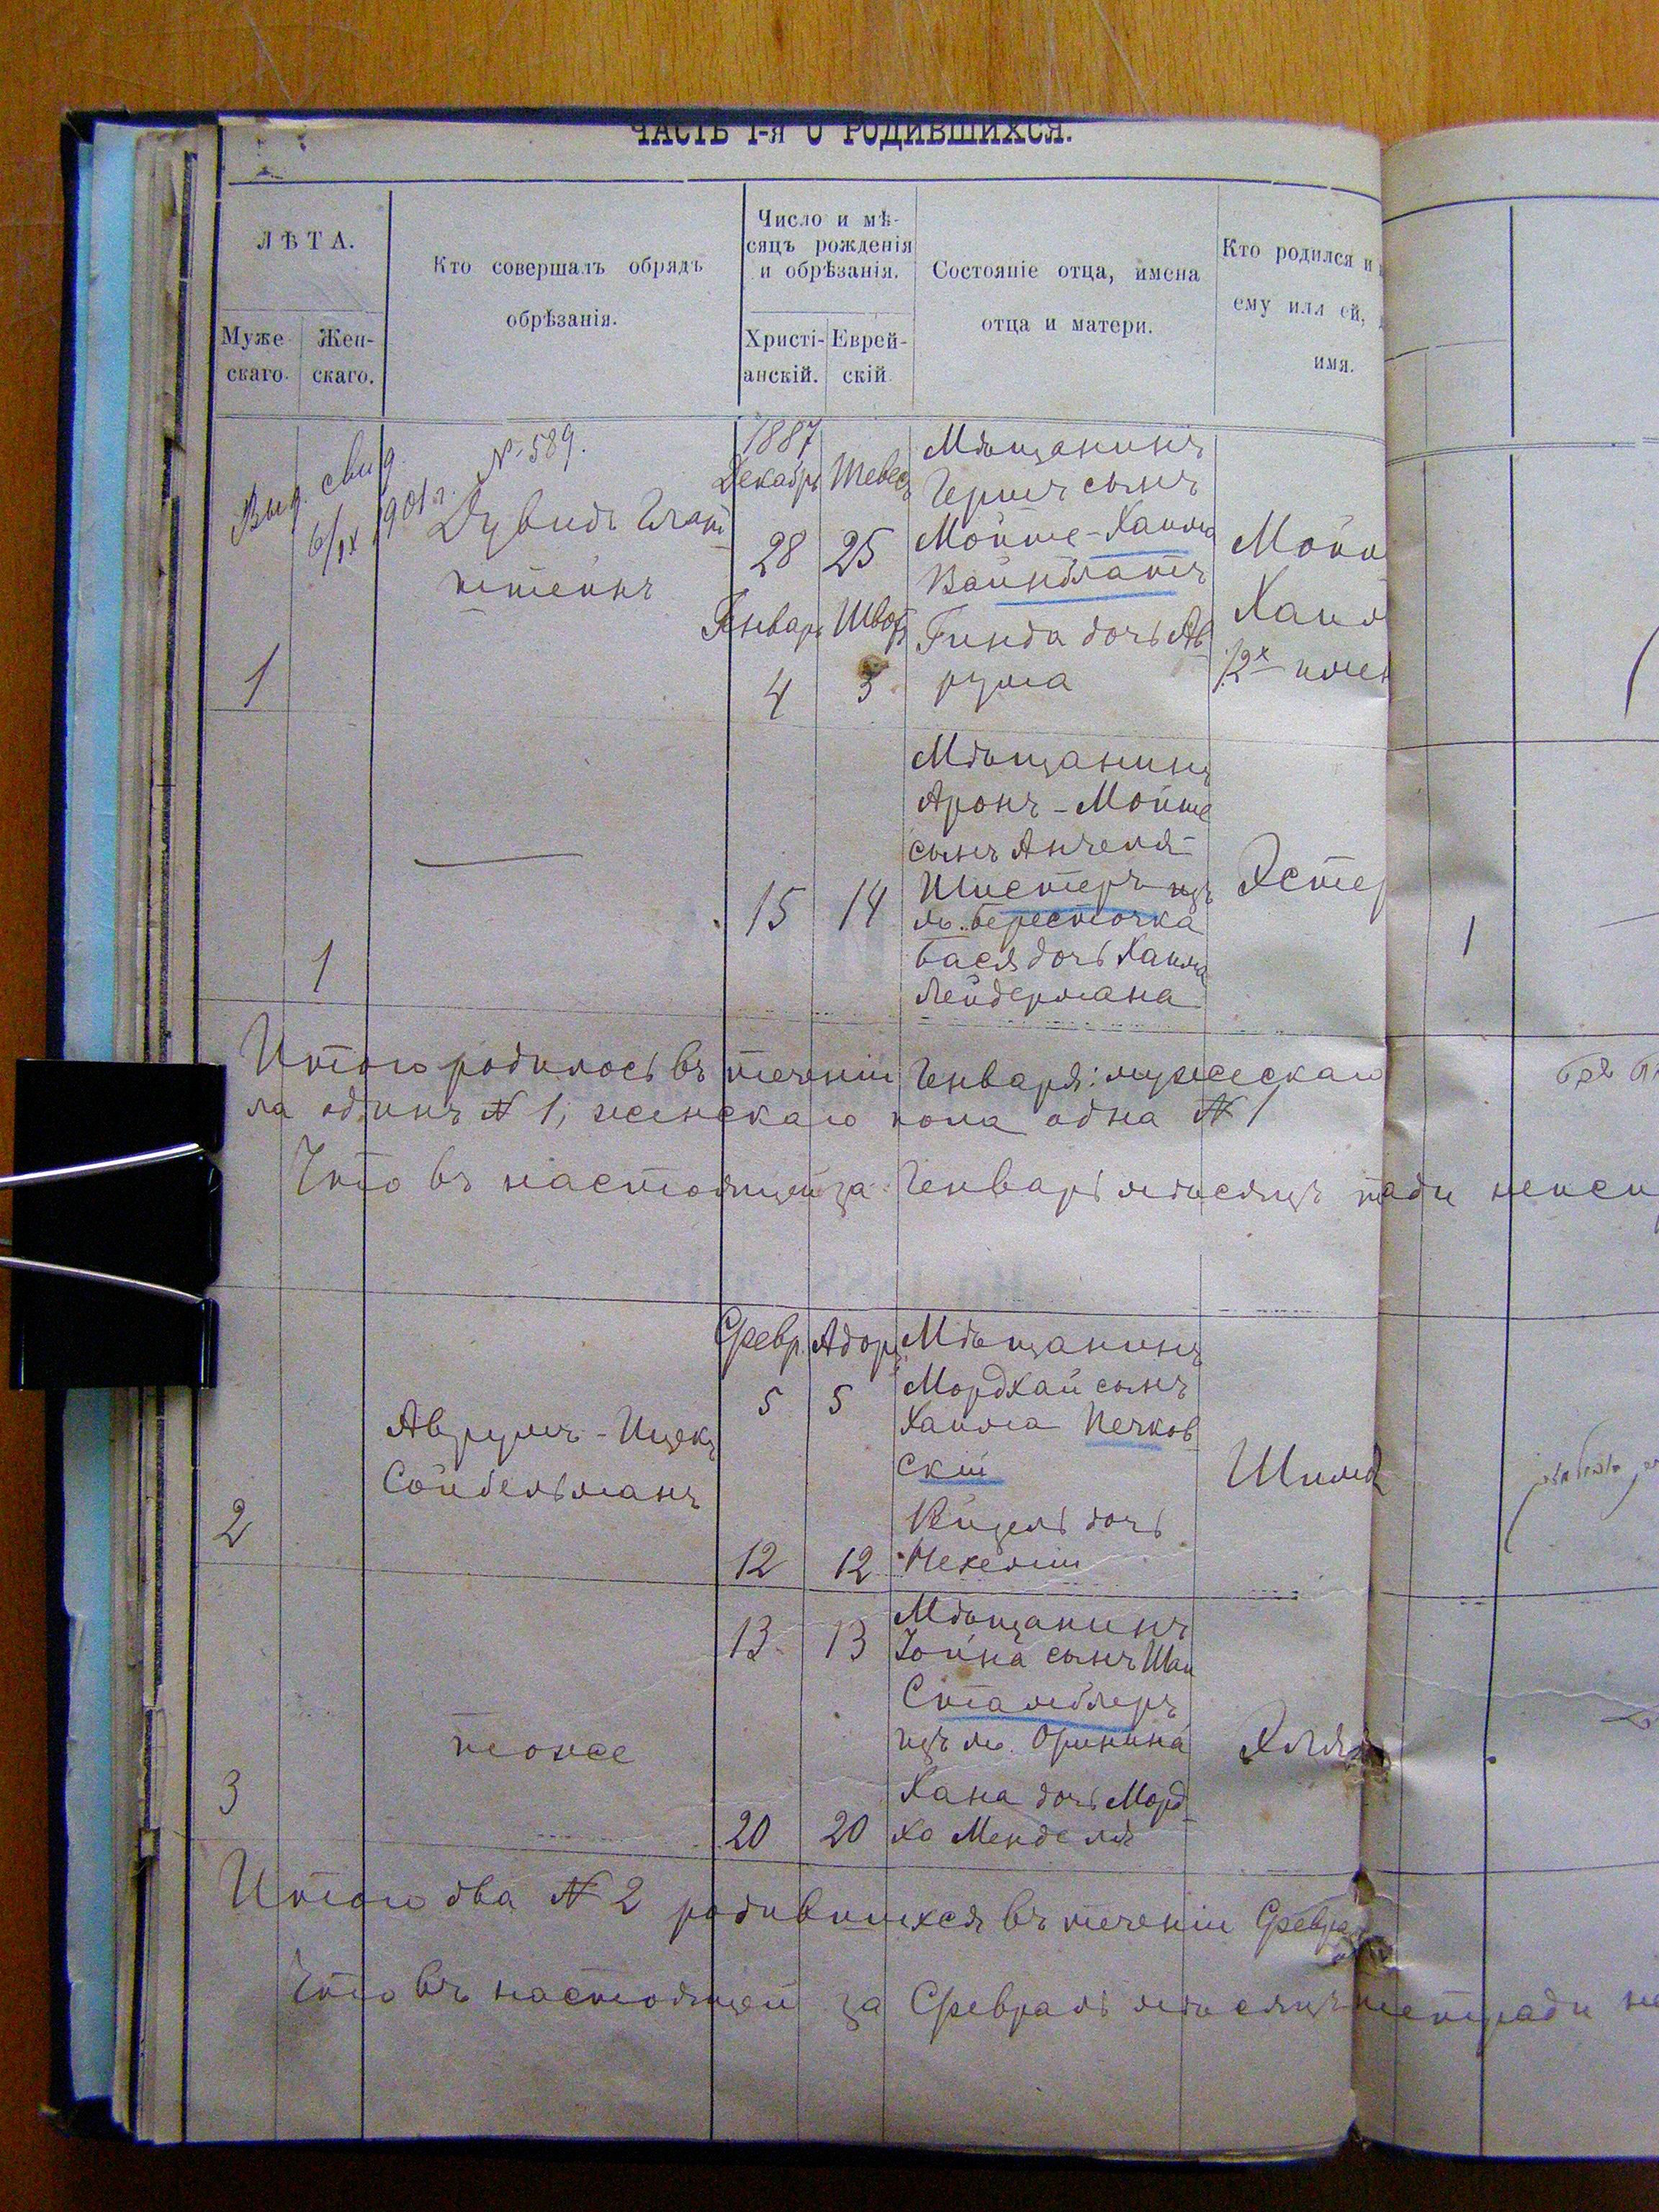 ЧАСТЬ I-я О РОДИВШИХСЯ.
ЛѢТА.
Муже-
скаго.
Жен-
скаго.
Кто совершалъ обрядъ
обрѣзанія.
Число и мѣ-
сяцъ рожденія
и обрѣзанія.
Христі-
анскій.
Еврей-
скій
Состояніе отца, имена
отца и матери.
Кто родился и
ему или ей,
имя.
Выд. свид.
6/IX 1901 г. № 589.
1
Дувидъ Глат
штейнъ
1887
Декабрь Тевесъ
28 25
Генварь Швотъ
4 5
Мѣщанинъ
Гершъ сынъ
Мойше-Хаима
Вайнблатъ
Гинда дочь Ав
рума
Мойш
Хаим
2х имен
1
15 14
Мѣщанинъ
Аронъ-Мойше
сынъ Анчеля
Шистеръ изъ
м. Берестечка
Бася дочь Хаима
Лейдермана
Эстер
1
Итого родилось въ теченіи Генваря: мужескаго
ла одинъ № 1, женскаго пола одна № 1
Что въ настоящей за Генварь мѣсяцъ тради
2
Аврумъ-Ицекъ
Сойбельманъ
Февр. Адоръ
5 5
12 12
Мѣщанинъ
Мордхай сынъ
Хаима Печков
скій
Вицель дочь
Нехеміи
Шима
3
тоже
13 13
20 20
Мѣщанинъ
Іойна сынъ Шаи
Стамблеръ
изъ м. Оринина
Хана дочь Морд
хо Менделя
Итого два № 2 родившихся въ теченіи Февра
Что въ настоящей за Февраль мѣсяцъ тетради не